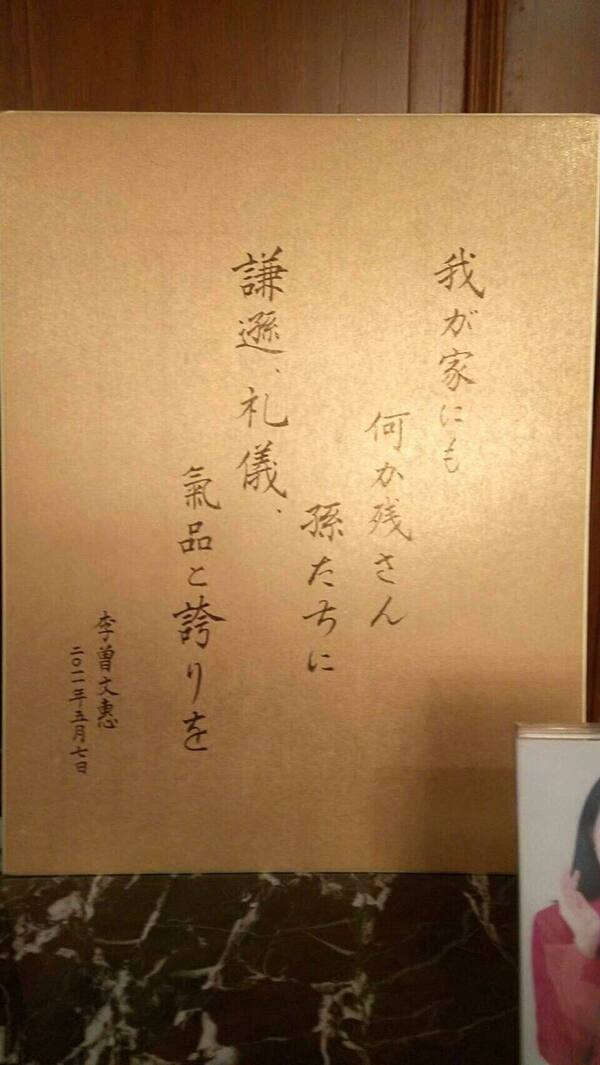 我が家にも
何か残さん
孫たちに
謙遜、礼儀、
氣品と誇りを
李曽文惠
二〇一一年五月七日